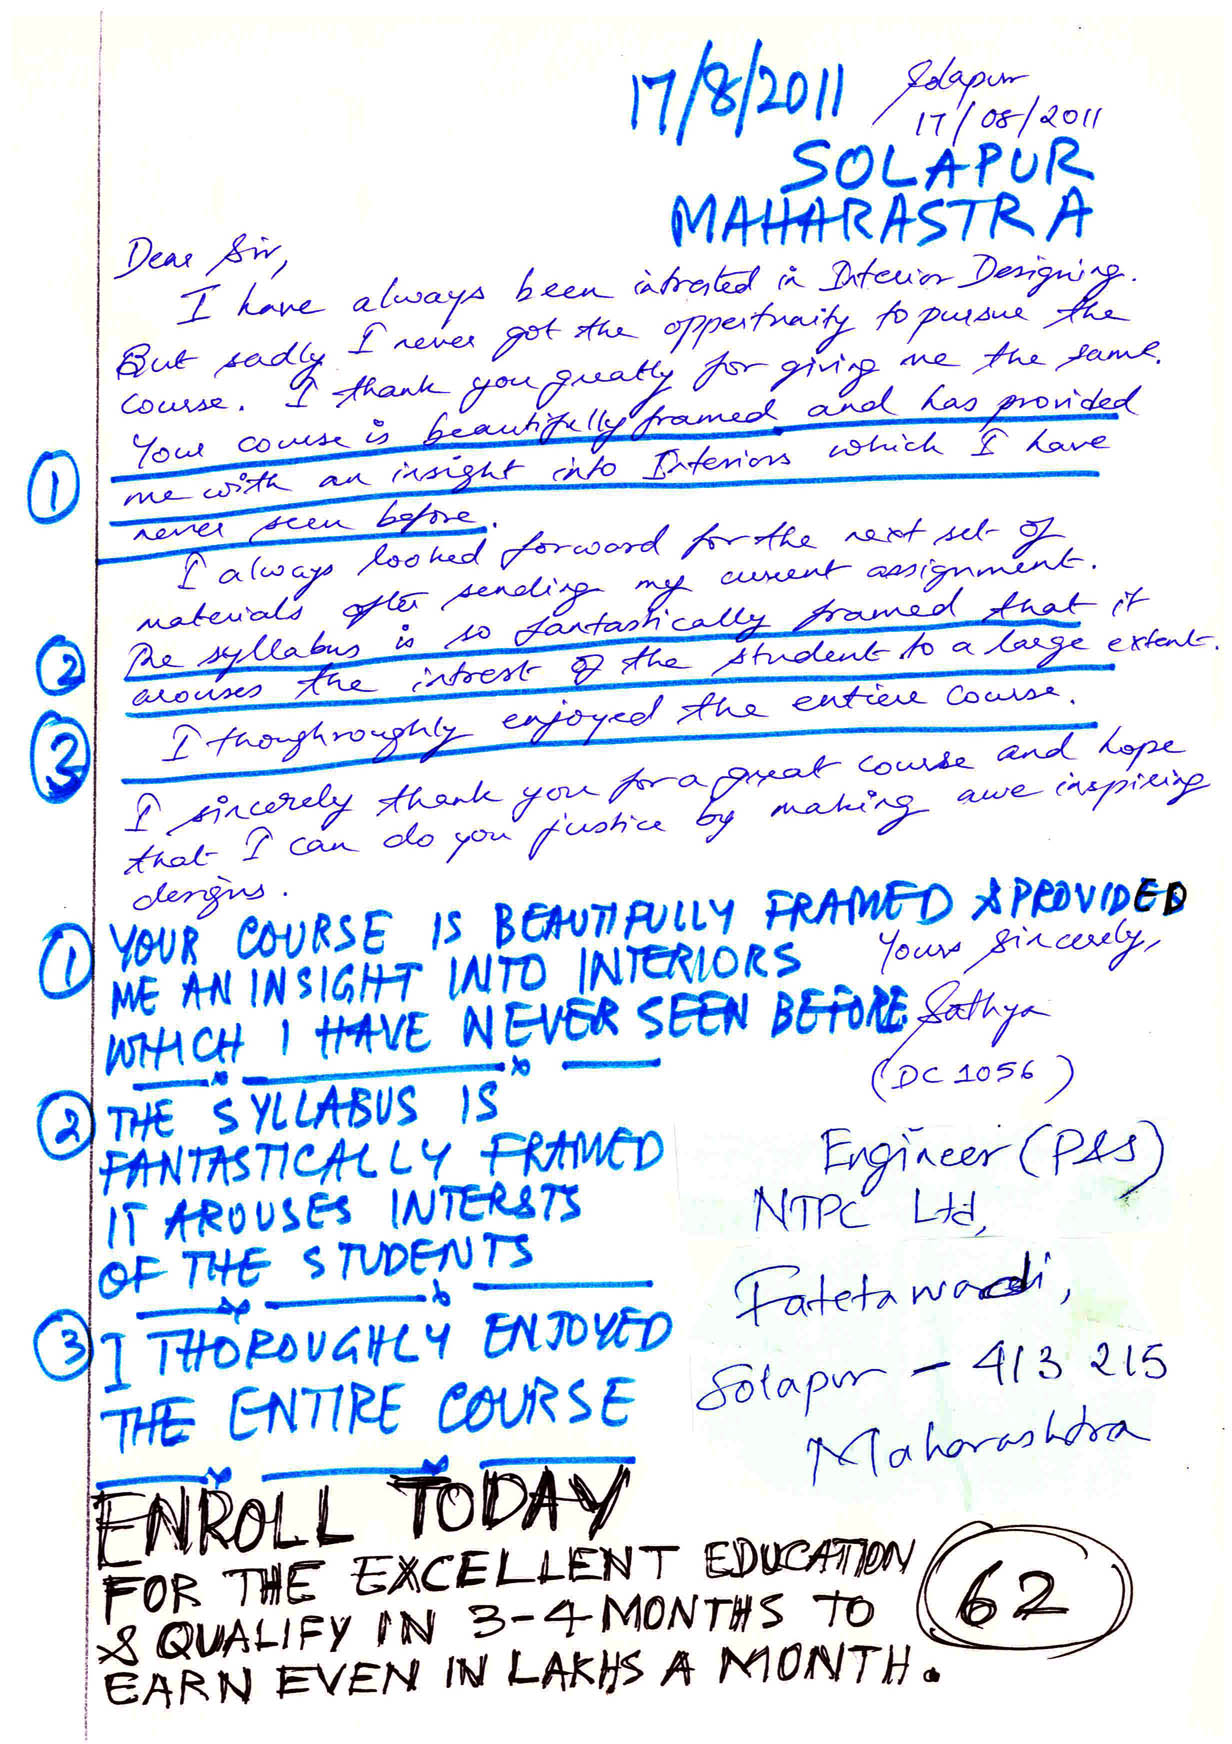 17/8/2011
Solapur
17/08/2011
SOLAPUR
MAHARASTRA
Dear Sir,
I have always been intrested in Interior Designing.
But sadly I never got the oppertnuity to pursue the
course. I thank you greatly for giving me the same.
Your course is beautifully framed and has provided
1 me with an insight into Interiors which I have
never seen before.
I always looked forward for the next set of
materials after sending my current assignment.
2 The syllabus is so fantastically framed that it
arouses the intrest of the student to a large extent.
3 I thoughroughly enjoyed the entire course.
I sincerely thank you for a great course and hope
that I can do you justice by making awe inspiring
designs.
1 YOUR COURSE IS BEAUTIFULLY FRAMED & PROVIDED
ME AN INSIGHT INTO INTERIORS
WHICH I HAVE NEVER SEEN BEFORE
Yours Sincerely,
Sathya
(DC 1056)
2 THE SYLLABUS IS
FANTASTICALLY FRAMED
IT AROUSES INTERSTS
OF THE STUDENTS
3 I THOROUGHLY ENJOYED
THE ENTIRE COURSE
Engineer (P&S)
NTPC Ltd,
Fatetawadi,
Solapur - 413 215
Maharashtra
ENROLL TODAY
FOR THE EXCELLENT EDUCATION
& QUALIFY IN 3-4 MONTHS TO
EARN EVEN IN LAKHS A MONTH.
62